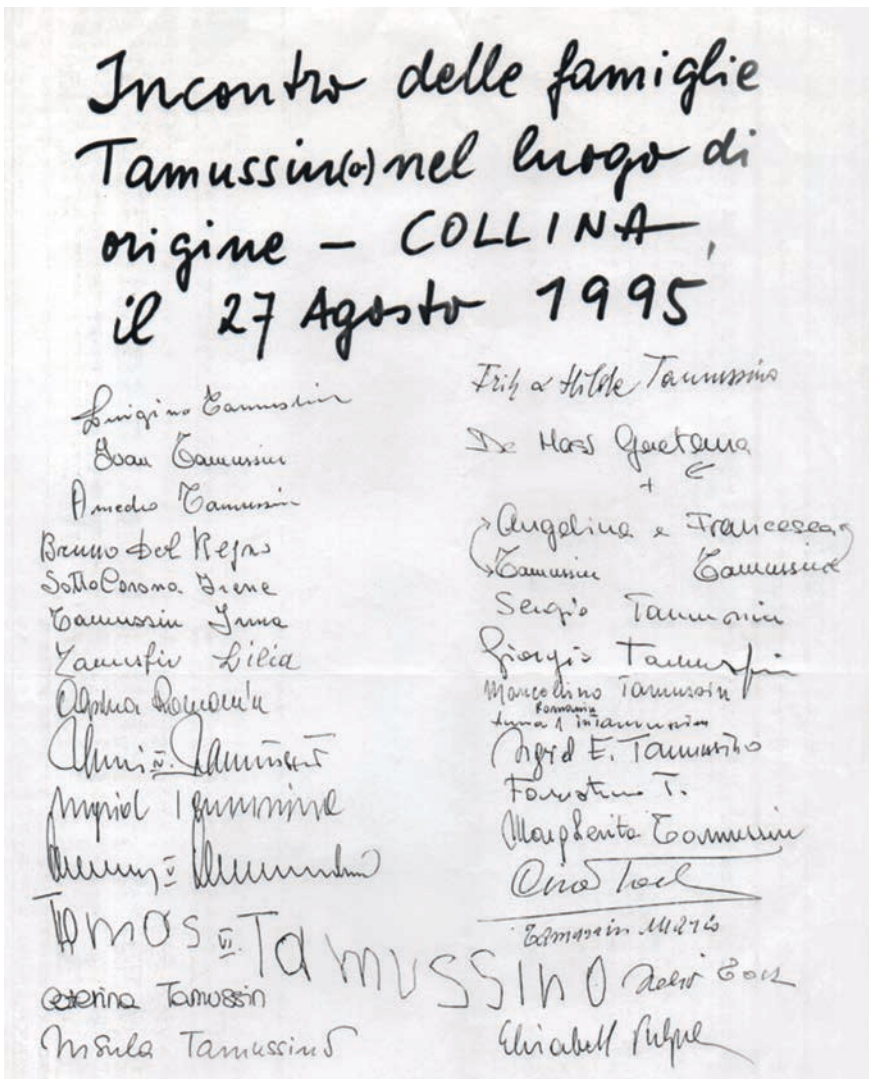 Incontro delle famiglie
Tamussin(o) nel luogo di
origine – COLLINA,
il 27 Agosto 1995
Luigino Tamussin
Ivan Tamussin
Amedeo Tamussin
Bruno Del Regno
SottoCorona Irene
Tamussin Irma
Tamussin Lilia
Romanin
IV. Tamussino
Ingrid Tamussino
V
Tamos VI. Tamussino
Caterina Tamussin
Ursula Tamussino
Fritz & Hilde Tamussino
De Gaetana
+
Angelina e Francesca
Tamussin Tamussin
Sergio Tamussin
Giorgio Tamussin
Marcellino Tamussin
Romanin
Anna in Tamussin
Sigrid E. Tamussino
T.
Margherita Tamussin
Tamussin Mario
Elisabeth